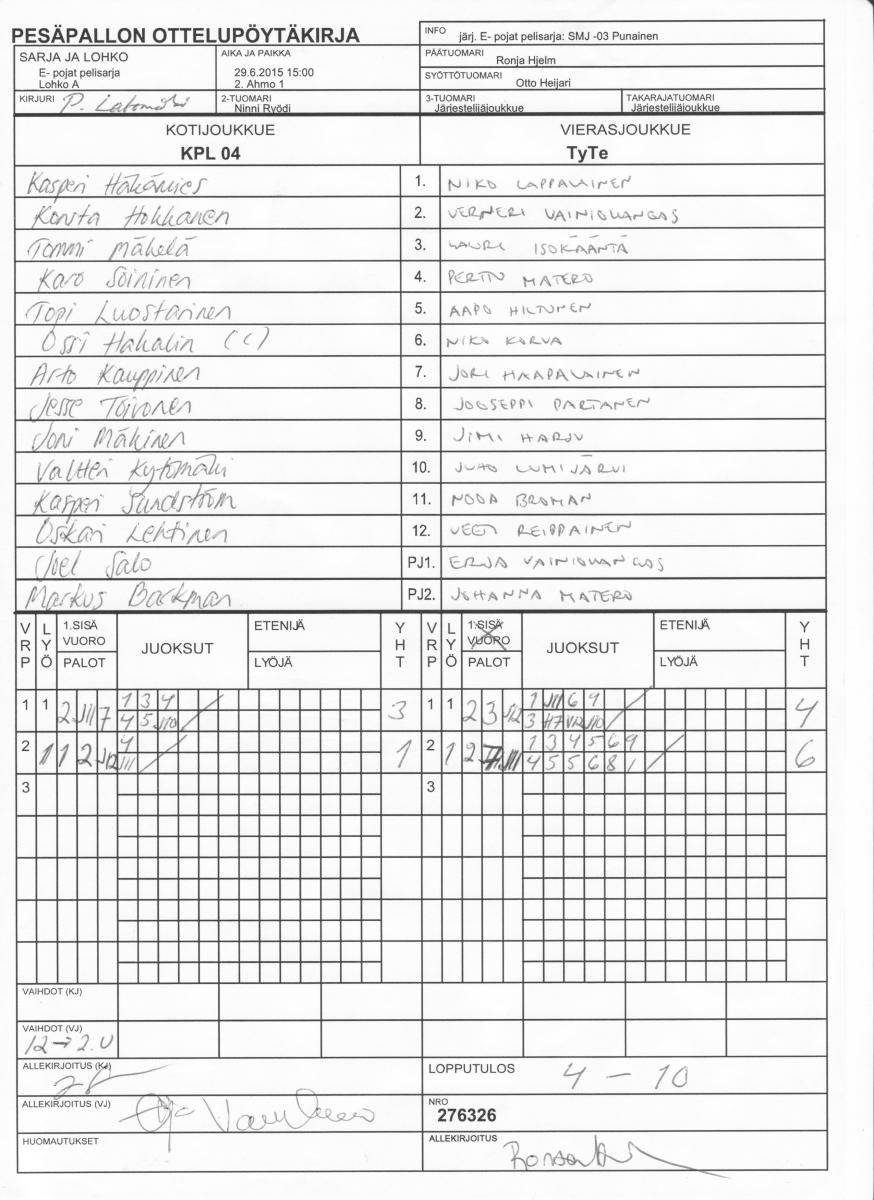 PESÄPALLON OTTELUPÖYTÄKIRJA
INFO järj. E- pojat pelisarja: SMJ -03 Punainen
SARJA JA LOHKO
E- pojat pelisarja
Lohko A
AIKA JA PAIKKA
29.6.2015 15:00
2. Ahmo 1
PÄÄTUOMARI
Ronja Hjelm
SYÖTTÖTUOMARI
Otto Heijari
KIRJURI P.
2-TUOMARI
Ninni Ryödi
3-TUOMARI
Järjestelijäjoukkue
TAKARAJATUOMARI
Järjestelijäjoukkue
KOTIJOUKKUE
KPL 04
VIERASJOUKKUE
TyTe
Kasperi Hakamies 1. NIKO LAPPALAINEN
Konsta Hokkanen 2. VERNERI VAINIOKANGAS
Tommi Mäkelä 3. LAURI ISOKÄÄNTÄ
Karo Soininen 4. PERTTU MATERO
Topi Luostarinen 5. AAPO HILTUNEN
Ossi Hakalin (C) 6. NIKO KORVA
Arto Kauppinen 7. JORI HAAPALAINEN
Jesse Toivonen 8. JOOSEPPI PARTANEN
Joni Mäkinen 9. JIMI HARJU
Valtteri Kytömäki 10. JUHO LUMIJÄRVI
Kasperi Sundström 11. NOOA BROMAN
Oskari Lehtinen 12. VEETI REIPPAINEN
Joel Salo PJ1. ERJA VAINIOKANGAS
Markus Backman PJ2. JOHANNA MATERO
VRP LYÖ 1.SISÄ VUORO PALOT JUOKSUT ETENIJÄ LYÖJÄ YHT VRP LYÖ 1.SISÄ VUORO PALOT JUOKSUT ETENIJÄ LYÖJÄ YHT
1 1 2 JII 7 1 3 4 3 1 1 2 3 J12 1 JII 6 9 4
4 5 J10 3 H7 V12 J10
2 1 1 2 J12 4 1 2 1 2 JII 1 3 4 5 6 9 6
JII 4 5 5 6 8 1
3 3
VAIHDOT (KJ)
VAIHDOT (VJ)
12→2.U
ALLEKIRJOITUS (KJ)
LOPPUTULOS 4 – 10
ALLEKIRJOITUS (VJ)
NRO
276326
HUOMAUTUKSET
ALLEKIRJOITUS